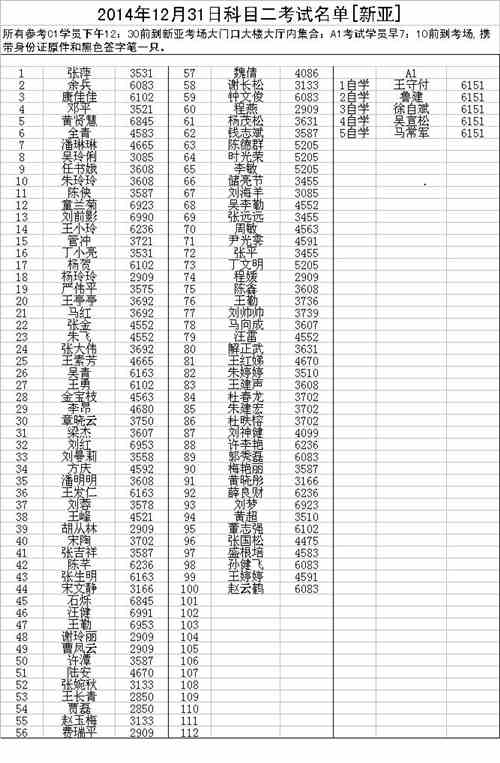 2014年12月31日科目二考试名单[新亚]
所有参考C1学员下午12：30前到新亚考场大门口大楼大厅内集合；A1考试学员早7：10前到考场，携
带身份证原件和黑色签字笔一只。
1 张萍 3531 57 魏倩 4086 A1
2 余兵 6083 58 谢长松 3133 1自学 王守付 6151
3 康佳佳 6102 59 钟文俊 6083 2自学 鲁建 6151
4 邓平 3521 60 程燕 2909 3自学 徐自斌 6151
5 黄贤慧 6845 61 杨茂松 3631 4自学 吴宣松 6151
6 全青 4583 62 钱志斌 3587 5自学 马常军 6151
7 潘琳琳 4665 63 陈德群 5205
8 吴玲俐 3085 64 时光荣 5205
9 任书娥 3608 65 李敏 5205
10 朱玲玲 3608 66 储亮节 3455
11 陈侠 3587 67 刘海羊 3085
12 童兰菊 6923 68 吴李勤 4552
13 刘前影 6990 69 张远远 3455
14 王小玲 6236 70 周敏 4563
15 管冲 3721 71 尹光雲 4591
16 丁小亮 3531 72 张平 3455
17 杨贺 6102 73 丁文明 5205
18 杨玲玲 2909 74 程媛 2909
19 严伟平 3575 75 陈鑫 3608
20 王亭亭 3692 76 王勤 3736
21 马红 3692 77 刘帅帅 3739
22 张金 4552 78 马向成 3607
23 朱飞 4552 79 汪雷 4552
24 张大伟 3692 80 解正武 3631
25 王素芳 4665 81 王红娣 4670
26 吴青 6163 82 朱婷婷 3510
27 王勇 6102 83 王建声 3608
28 金宝枝 4563 84 杜春龙 3702
29 李昂 4680 85 朱建宏 3702
30 章晓云 3750 86 杜昳榕 3702
31 梁杰 3607 87 刘神健 4099
32 刘红 6953 88 许李艳 6236
33 刘曼莉 3558 89 郭秀磊 6083
34 方庆 4592 90 梅艳丽 3587
35 潘明明 3608 91 黄晓彤 3166
36 王发仁 6163 92 薛良财 6236
37 刘蓉 3578 93 刘梦 6923
38 王峰 4521 94 黄超 3510
39 胡从林 2909 95 董志强 6102
40 宋陶 3702 96 张国松 4475
41 张吉祥 3587 97 盛根培 4583
42 陈芊 6236 98 孙健飞 6083
43 张生明 6163 99 王婷婷 4591
44 宋文静 3166 100 赵云鹤 6083
45 石烁 6845 101
46 汪健 6991 102
47 王勤 6953 103
48 谢玲丽 2909 104
49 曹凤云 2909 105
50 许潭 3587 106
51 陆安 4670 107
52 张婉秋 3133 108
53 王长青 2850 109
54 贾磊 2850 110
55 赵玉梅 3133 111
56 费瑞平 2909 112